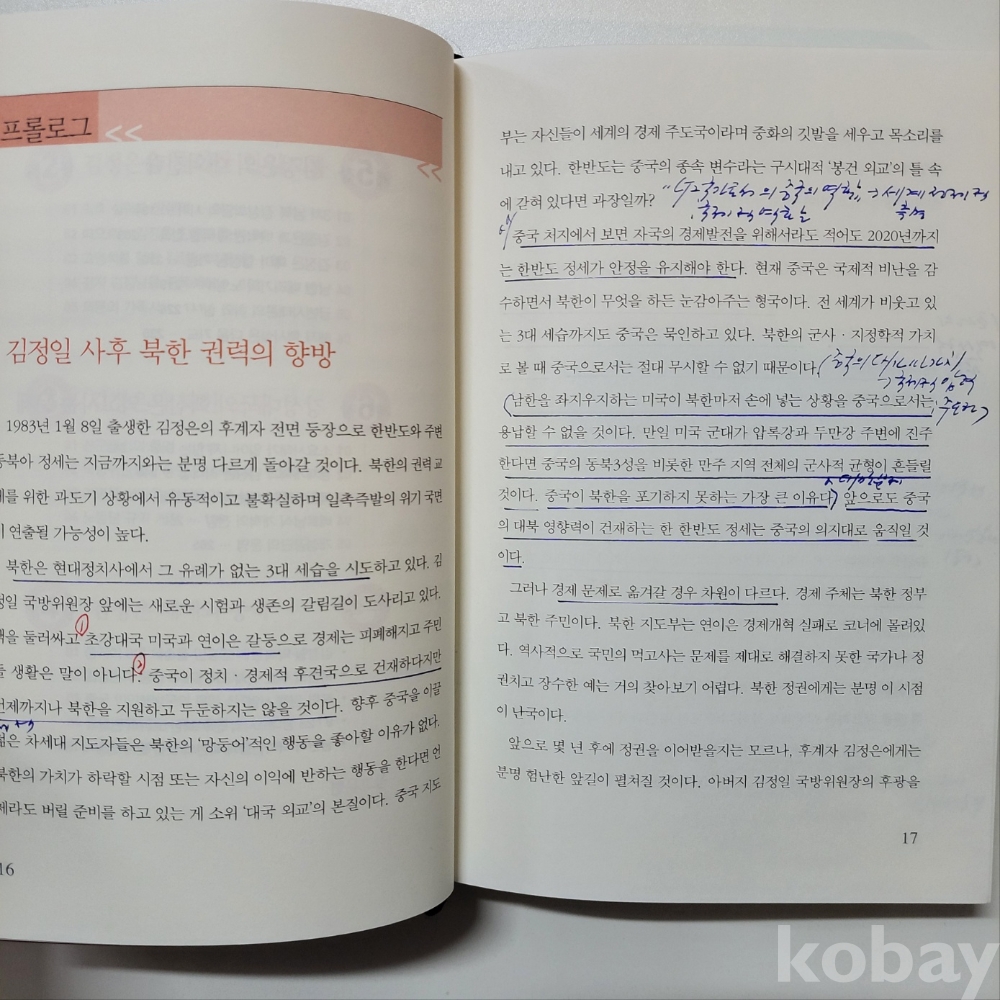 프롤로그 <<
<<
김정일 사후 북한 권력의 향방
1983년 1월 8일 출생한 김정은의 후계자 전면 등장으로 한반도와 주변
동북아 정세는 지금까지와는 분명 다르게 돌아갈 것이다. 북한의 권력 교
를 위한 과도기 상황에서 유동적이고 불확실하며 일촉즉발의 위기 국면
연출될 가능성이 높다.
북한은 현대정치사에서 그 유례가 없는 3대 세습을 시도하고 있다. 김
정일 국방위원장 앞에는 새로운 시험과 생존의 갈림길이 도사리고 있다.
핵을 둘러싸고 초강대국 미국과 연이은 갈등으로 경제는 피폐해지고 주민
들 생활은 말이 아니다. 중국이 정치·경제적 후견국으로 건재하다지만
언제까지나 북한을 지원하고 두둔하지는 않을 것이다. 향후 중국을 이끌
젊은 차세대 지도자들은 북한의 '망둥어'적인 행동을 좋아할 이유가 없다.
북한의 가치가 하락할 시점 또는 자신의 이익에 반하는 행동을 한다면 언
제라도 버릴 준비를 하고 있는 게 소위 '대국 외교'의 본질이다. 중국 지도
16
부는 자신들이 세계의 경제 주도국이라며 중화의 깃발을 세우고 목소리를
내고 있다. 한반도는 중국의 종속 변수라는 구시대적 '봉건 외교'의 틀 속
에 갇혀 있다면 과장일까?
중국 처지에서 보면 자국의 경제발전을 위해서라도 적어도 2020년까지
는 한반도 정세가 안정을 유지해야 한다. 현재 중국은 국제적 비난을 감
수하면서 북한이 무엇을 하든 눈감아주는 형국이다. 전 세계가 비웃고 있
는 3대 세습까지도 중국은 묵인하고 있다. 북한의 군사·지정학적 가치
로 볼 때 중국으로서는 절대 무시할 수 없기 때문이다.
남한을 좌지우지하는 미국이 북한마저 손에 넣는 상황을 중국으로서는
용납할 수 없을 것이다. 만일 미국 군대가 압록강과 두만강 주변에 진주
한다면 중국의 동북3성을 비롯한 만주 지역 전체의 군사적 균형이 흔들릴
것이다. 중국이 북한을 포기하지 못하는 가장 큰 이유다. 앞으로도 중국
의 대북 영향력이 건재하는 한 한반도 정세는 중국의 의지대로 움직일 것
이다.
그러나 경제 문제로 옮겨갈 경우 차원이 다르다. 경제 주체는 북한 정부
고 북한 주민이다. 북한 지도부는 연이은 경제개혁 실패로 코너에 몰려있
다. 역사적으로 국민의 먹고사는 문제를 제대로 해결하지 못한 국가나 정
권치고 장수한 예는 거의 찾아보기 어렵다. 북한 정권에게는 분명 이 시점
이 난국이다.
앞으로 몇 년 후에 정권을 이어받을지는 모르나, 후계자 김정은에게는
분명 험난한 앞길이 펼쳐질 것이다. 아버지 김정일 국방위원장의 후광을
17
kobay